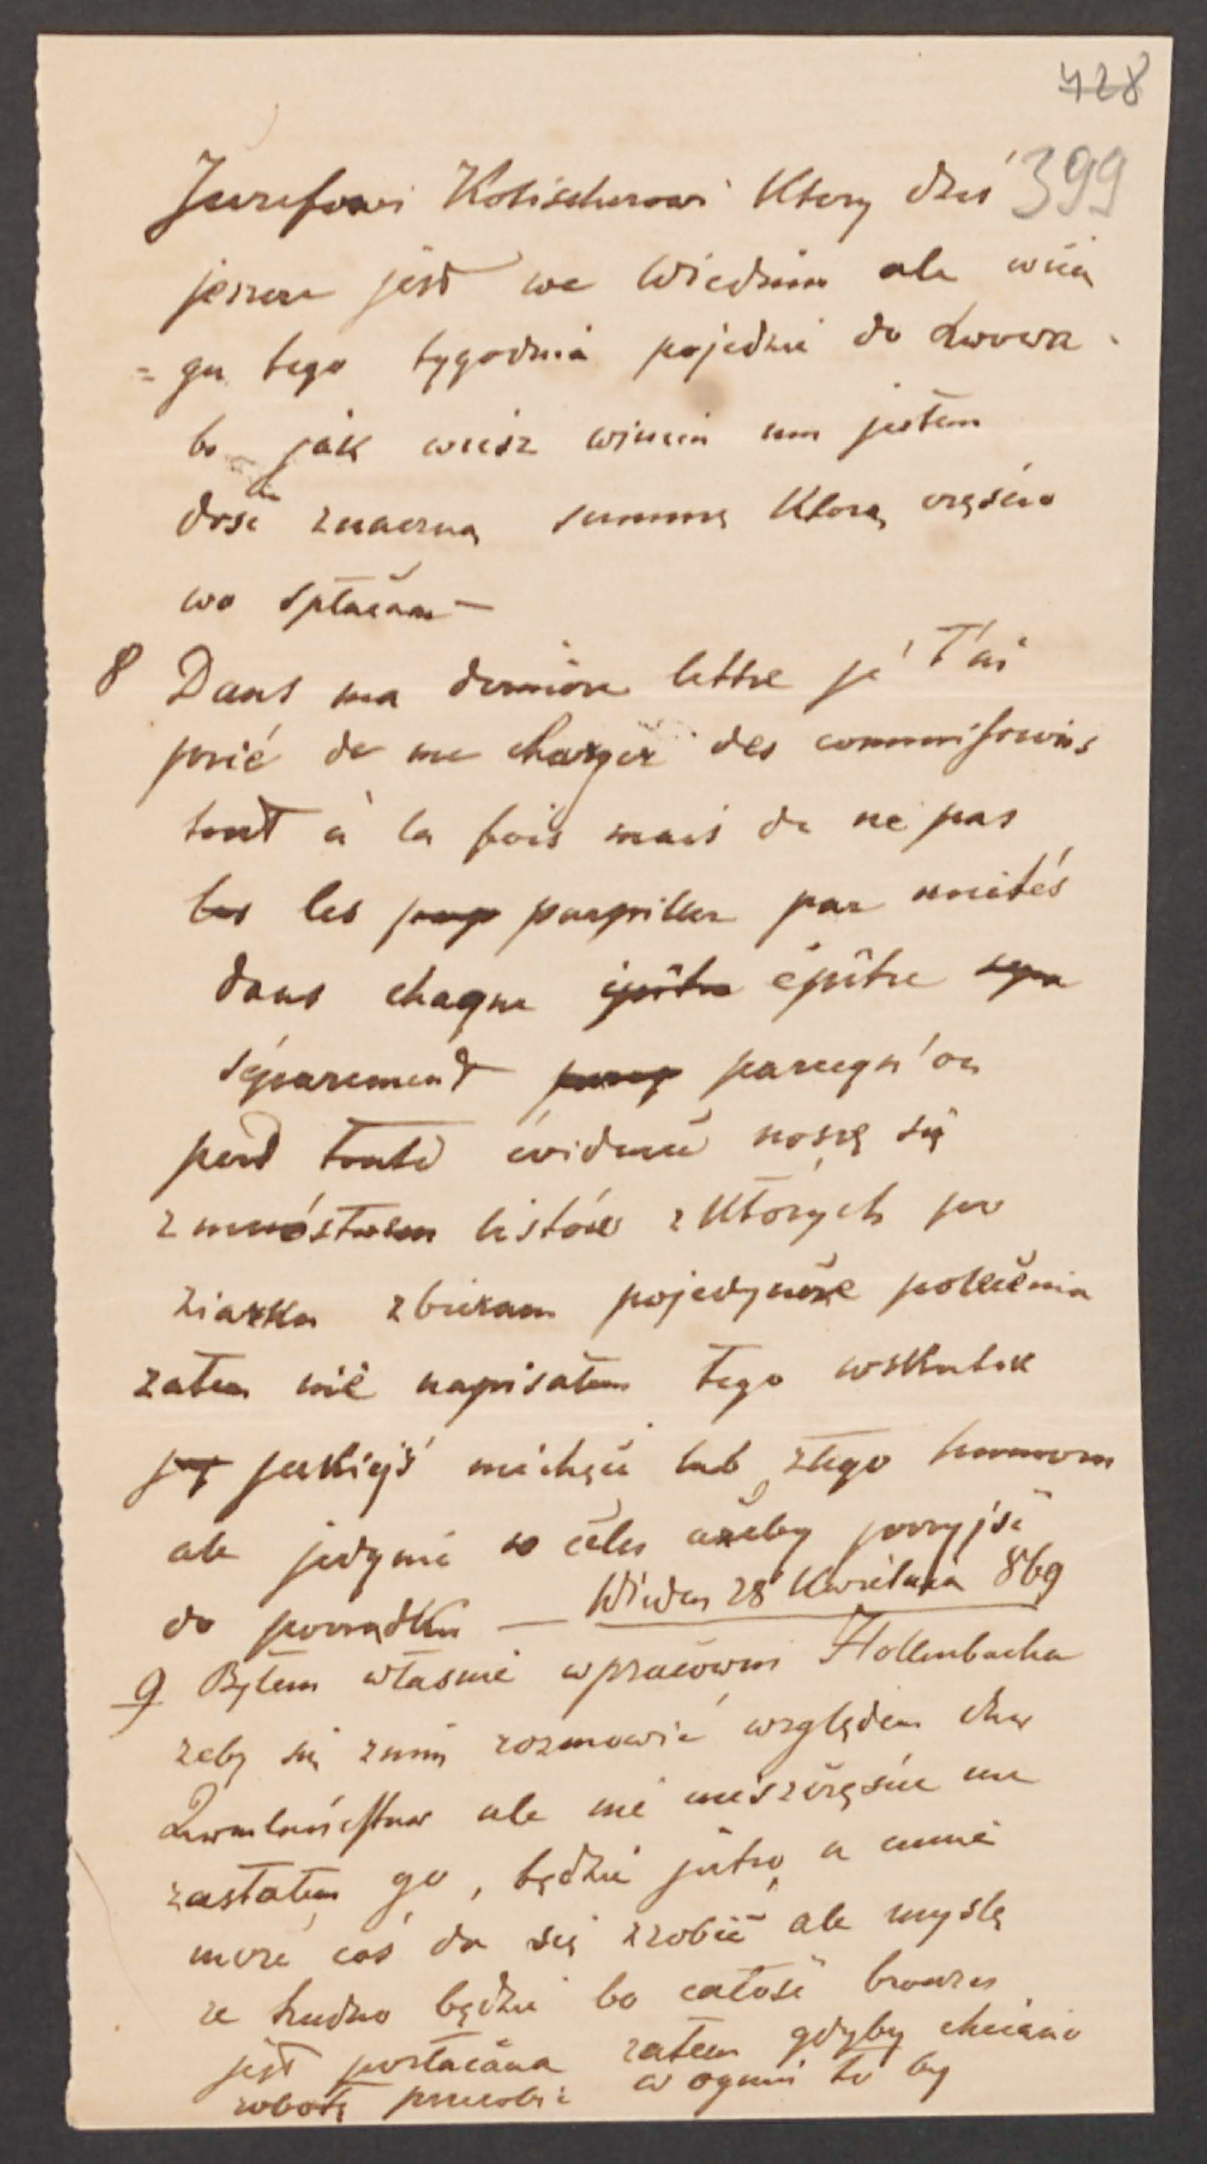 428
399
Jozefowi Kolischerowi Ktory dziś
jeszcze jest we Wiedniu ale wcią
= gu tego tygodnia pojedzie do Lwowa
bo jak wiesz winien mu jestem
dość znaczną summę Ktorą częścio
wo spłacam —
8 Dans ma derniere lettre je T'ai
prié de me charger des commissions
tout à la fois mais de ne pas
les les parpiller par unités
dans chaque épitre épitre sepa
séparement parcequ'on
perd toute évidence noszę się
z mnóstwem listów z Których po
ziarku zbieram pojedyncze polecenia
zatem nie napisałem tego wskutek
jakiejś niechęci lub złego humoru
ale jedynie w celu ażeby przyjść
do porządku — Wieden 28 Kwietnia 869
9 Byłem własnie wpracowni Hollenbacha
zeby się znim rozmowić względem dwu
ale nie nieszczęście nie
zastałem go, będzie jutro, a
może coś da się zrobić ale myslę
ze trudno będzie bo całość bronzu
jest pozłacana zatem gdyby chciano
robotę przerobić w ogniu to by